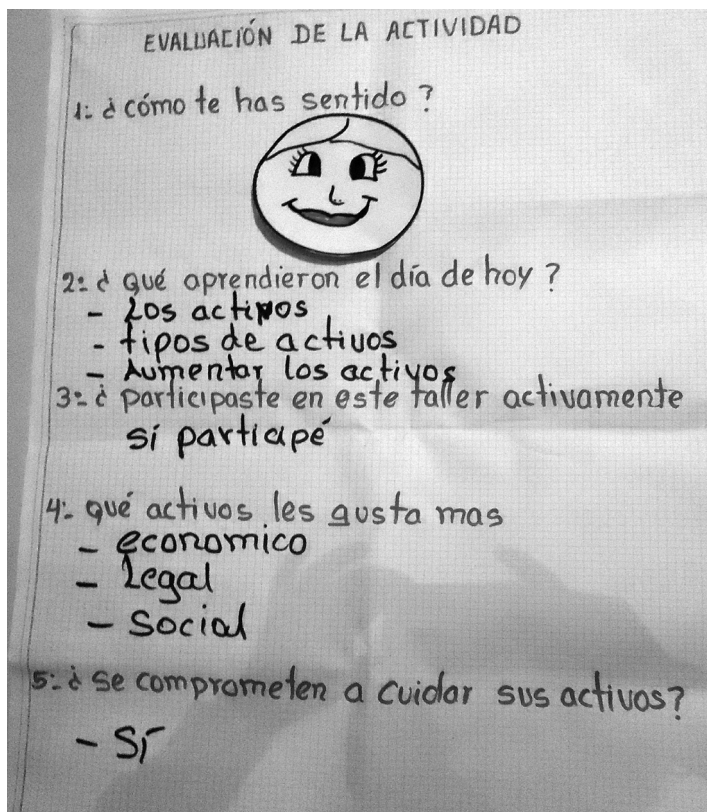 EVALUACIÓN DE LA ACTIVIDAD
1: ¿cómo te has sentido?
2: ¿ qué aprendieron el día de hoy?
- Los activos
- tipos de activos
- Aumentar los activos
3: ¿ participaste en este taller activamente
sí participé
4: qué activos les gusta mas
- economico
- Legal
- Social
5: ¿ se comprometen a cuidar sus activos?
- Sí